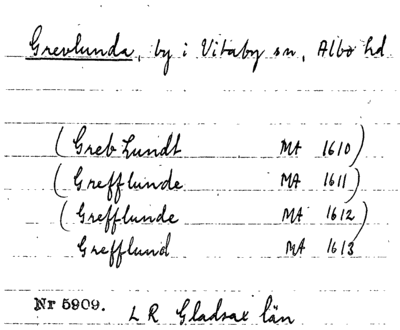 Grevlunda, by i Vitaby sn, Albo hd
(Greb Lundt MA 1610)
(Grefflunde MA 1611)
(Grefflunde MA 1612)
Grefflund MA 1613
Nr 5909. L R Gladsax län